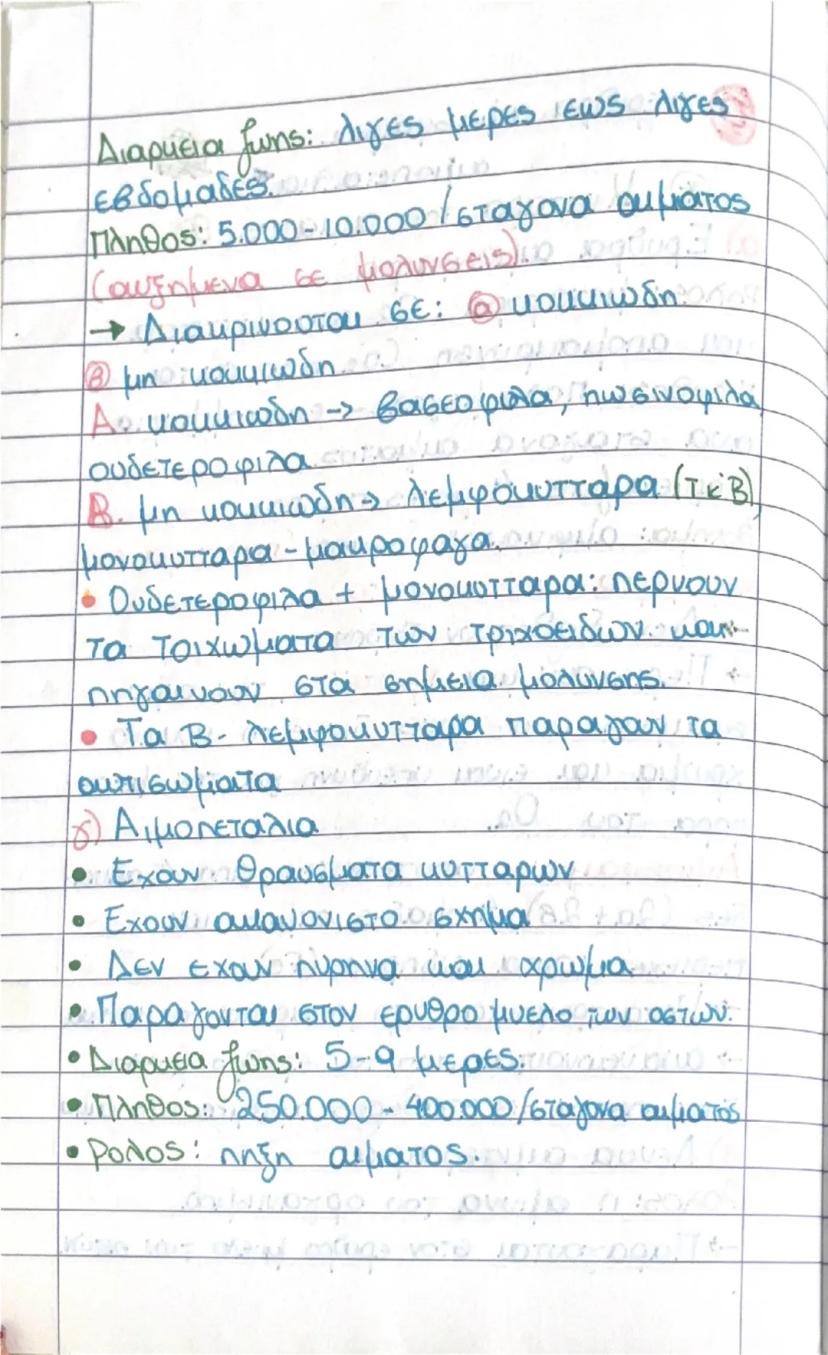 Διαρκεια ζωης: λιγες μερες εως λιγες
εβδομαδες.
Πληθος: 5.000-10.000/σταγονα αιματος
(αυξημενα σε μολυνσεις).
→ Διακρινονται σε: α κοκκιωδη
β μη κοκκιωδη
Α. κοκκιωδη → βασεοφιλα, ηωσινοφιλα,
ουδετεροφιλα
Β. μη κοκκιωδη → λεμφοκυτταρα (Τ κ Β),
μονοκυτταρα - μακροφαγα.
• Ουδετεροφιλα + μονοκυτταρα: περνουν
τα τοιχωματα των τριχοειδων και
πηγαινουν στα σημεια μολυνσης.
• Τα Β- λεμφοκυτταρα παραγουν τα
αντισωματα
γ) Αιμοπεταλια
• Εχουν θραυσματα κυτταρων
• Εχουν ακανονιστο σχημα
• Δεν εχουν πυρηνα και χρωμα
• Παραγονται στον ερυθρο μυελο των οστων.
• Διαρκεια ζωης: 5-9 μερες.
• Πληθος: 250.000 - 400.000/σταγονα αιματος
• Ρολος: πηξη αιματος.